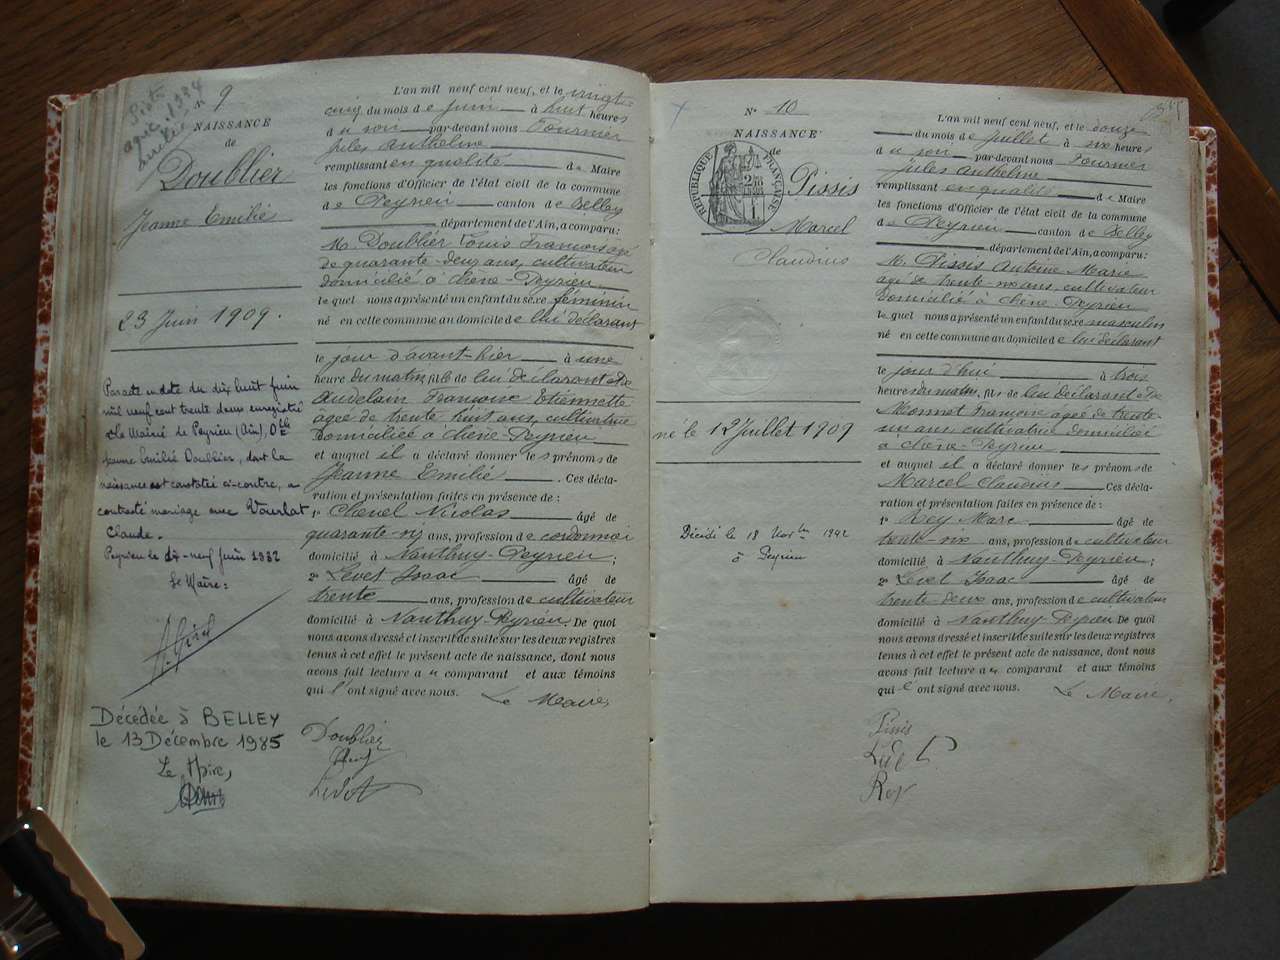 9
NAISSANCE
de
Doublier
Jeanne Emilie
23 Juin 1909.
Par acte en date du dix huit juin
mil neuf cent trente deux enregistré
à la Mairie de Peyrieu (Ain), Dlle
Jeanne Emilie Doublier, dont la
naissance est constatée ci-contre, a
contracté mariage avec Vourlat
Claude.
Peyrieu le dix-neuf juin 1932
Le Maire:
Décédée à BELLEY
le 13 Décembre 1985
Le Maire,
L'an mil neuf cent neuf, et le vingt
cinq du mois de Juin à huit heures
du soir par-devant nous Fournier
Jules Anthelme
remplissant en qualité de Maire
les fonctions d'Officier de l'état civil de la commune
de Peyrieu canton de Belley
département de l'Ain, a comparu:
M. Doublier Louis François âgé
de quarante-deux ans, cultivateur
domicilié à Chêne-Peyrieu
lequel nous a présenté un enfant du sexe féminin
né en cette commune au domicile de lui déclarant
le jour d'avant-hier à une
heure du matin, fils de lui déclarant et de
Audelain Françoise Etiennette
âgée de trente huit ans, cultivatrice
domiciliée à Chêne-Peyrieu
et auquel il a déclaré donner les prénoms de
Jeanne Emilie. Ces décla-
ration et présentation faites en présence de:
1° Chenel Nicolas âgé de
quarante-six ans, profession de cordonnier
domicilié à Nanthuy-Peyrieu;
2° Levet Isaac âgé de
trente ans, profession de cultivateur
domicilié à Nanthuy-Peyrieu. De quoi
nous avons dressé et inscrit de suite sur les deux registres
tenus à cet effet le présent acte de naissance, dont nous
avons fait lecture au comparant et aux témoins
qui l'ont signé avec nous. Le Maire
Doublier
Levet
N° 10
NAISSANCE
de
RÉPUBLIQUE FRANÇAISE
Pissis
Marcel
Claudius
né le 12 Juillet 1909
Décédé le 18 Novbre 1942
à Peyrieu
L'an mil neuf cent neuf, et le douze
du mois de Juillet à six heures
du soir par-devant nous Fournier
Jules Anthelme
remplissant en qualité de Maire
les fonctions d'Officier de l'état civil de la commune
de Peyrieu canton de Belley
département de l'Ain, a comparu:
M. Pissis Antoine Marie
âgé de trente-six ans, cultivateur
domicilié à Chêne-Peyrieu
lequel nous a présenté un enfant du sexe masculin
né en cette commune au domicile de lui déclarant
le jour d'hui à trois
heures du matin, fils de lui déclarant et de
Mionnet Françoise âgée de trente-
six ans cultivatrice domiciliée
à Chêne-Peyrieu
et auquel il a déclaré donner les prénoms de
Marcel Claudius. Ces décla-
ration et présentation faites en présence de:
1° Rey Marc âgé de
trente-six ans, profession de cultivateur
domicilié à Nanthuy-Peyrieu;
2° Levet Isaac âgé de
trente-deux ans, profession de cultivateur
domicilié à Nanthuy-Peyrieu De quoi
nous avons dressé et inscrit de suite sur les deux registres
tenus à cet effet le présent acte de naissance, dont nous
avons fait lecture au comparant et aux témoins
qui l'ont signé avec nous. Le Maire,
Pissis
Levet
Rey